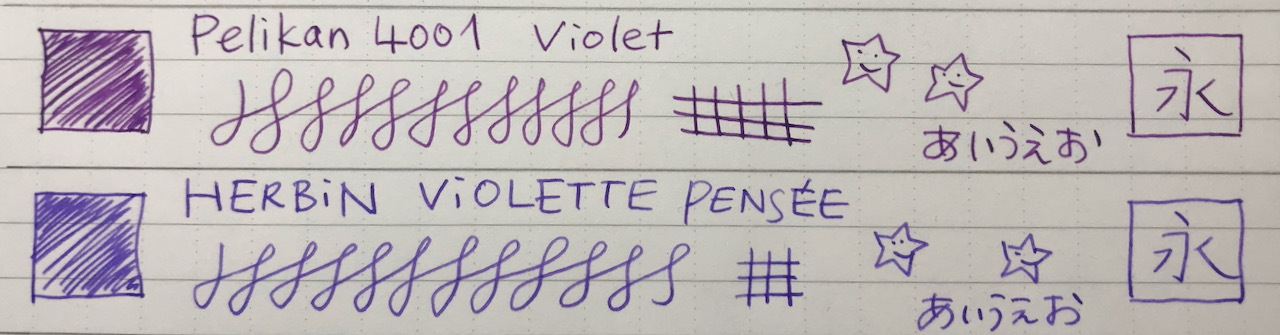 Pelikan 4001 Violet
あいうえお
永
HERBiN ViOLETTE PENSÉE
あいうえお
永